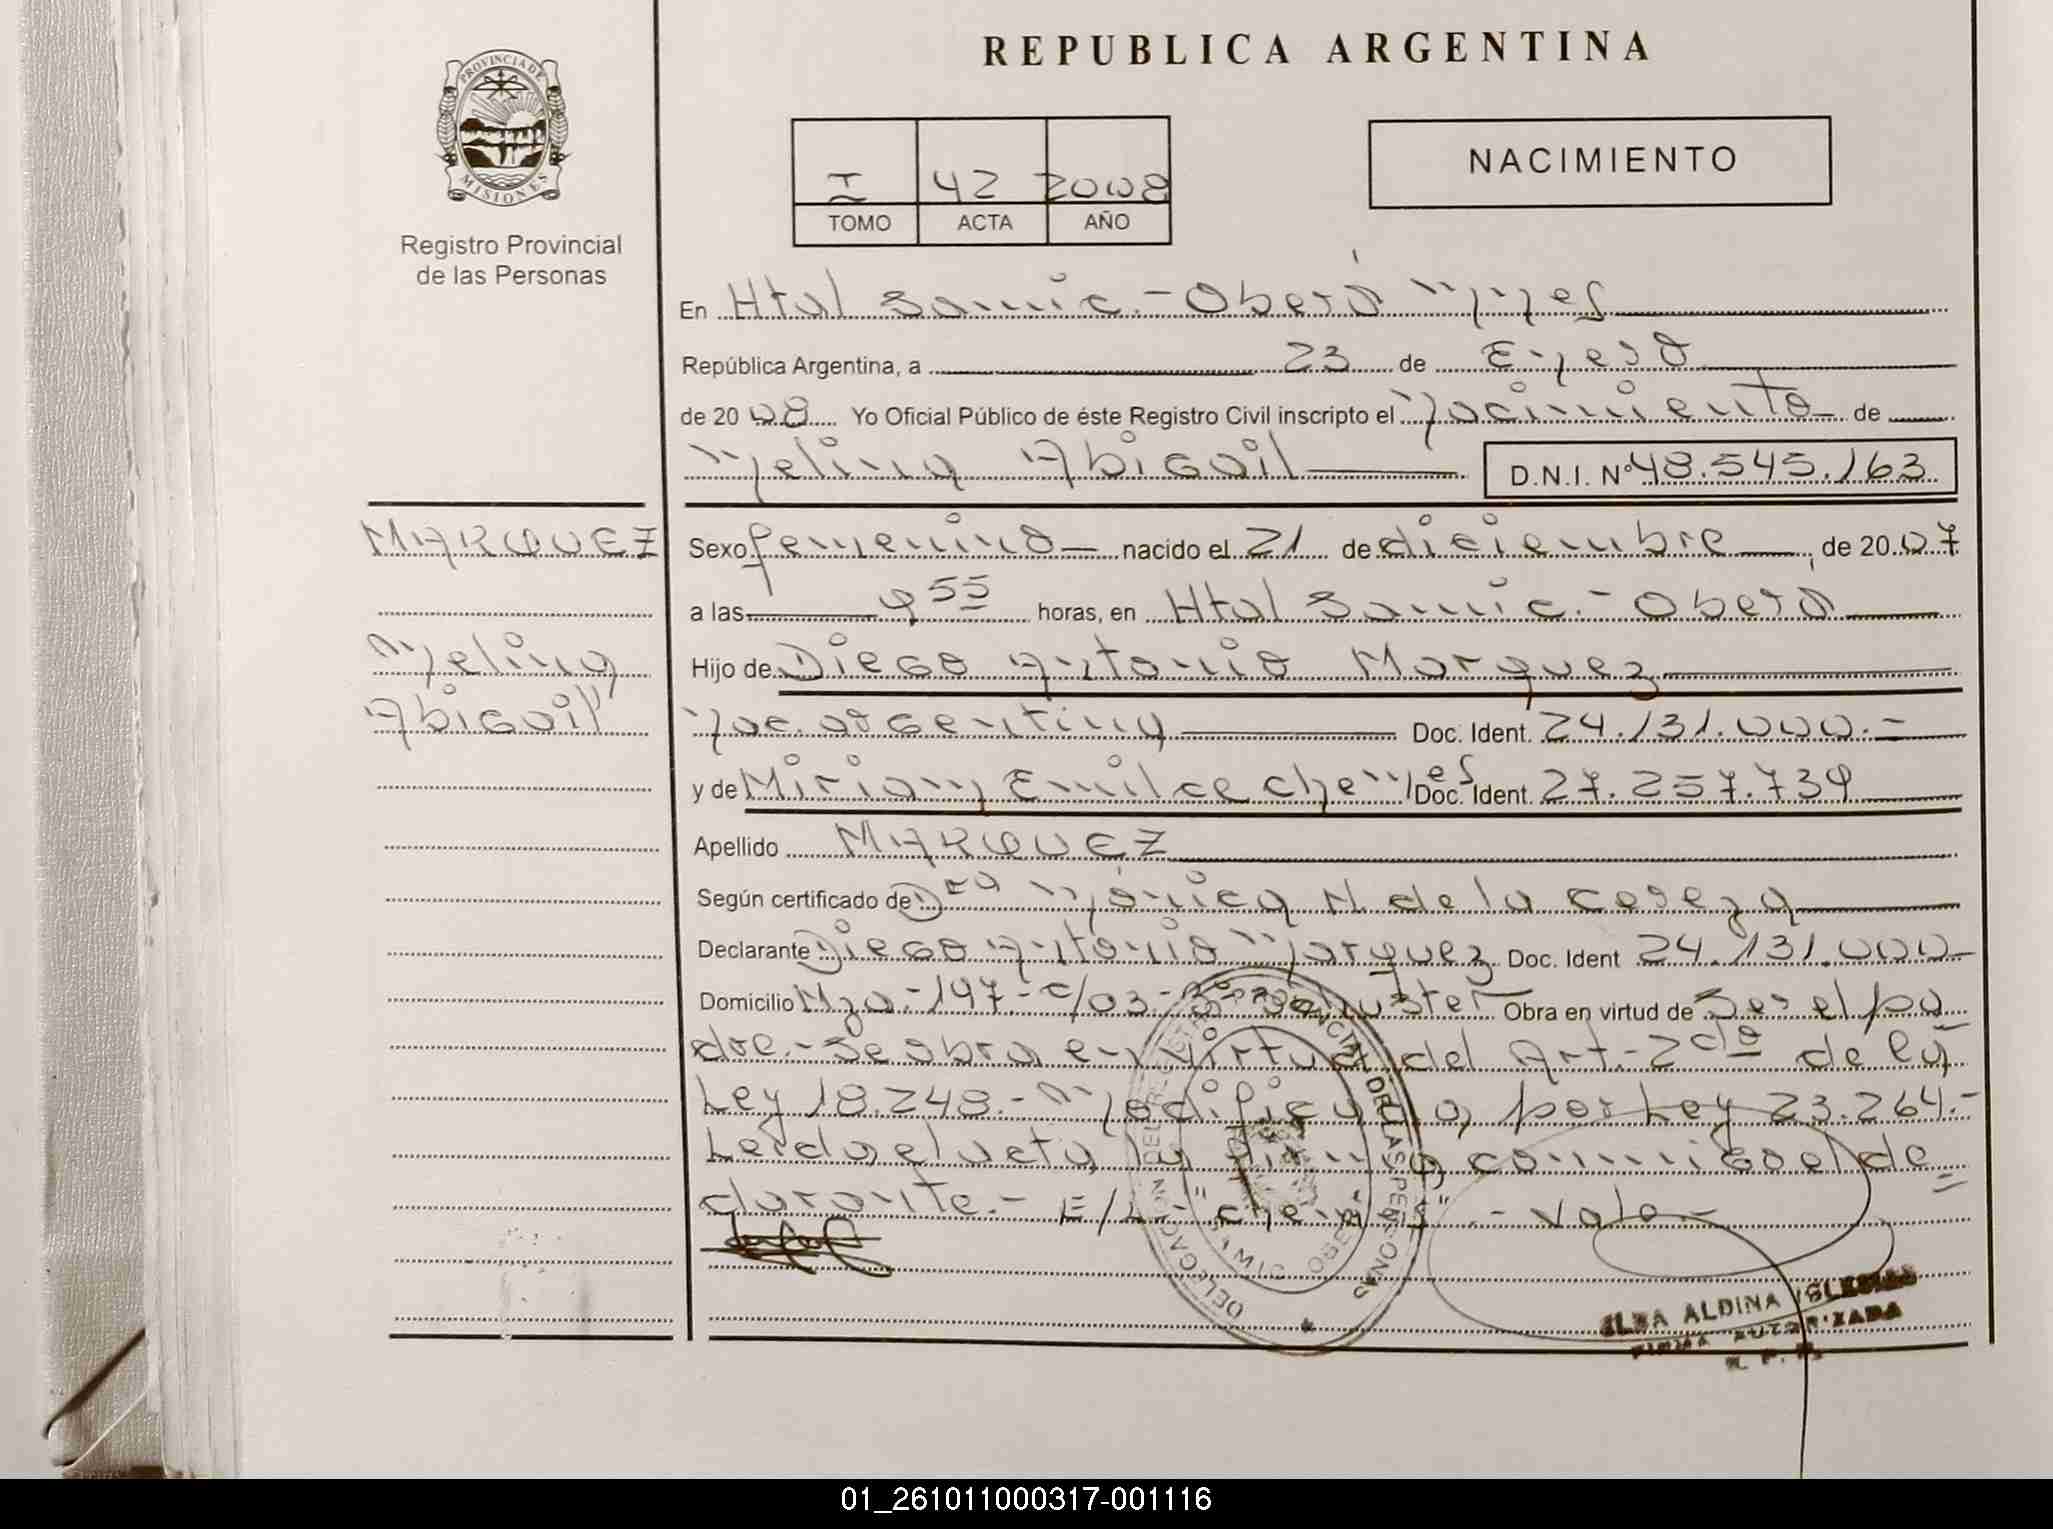 REPUBLICA ARGENTINA
PROVINCIA DE MISIONES
Registro Provincial
de las Personas
I 42 2008
TOMO ACTA AÑO
NACIMIENTO
En Htal Samic.- Oberá Mnes
República Argentina, a 23 de Enero
de 2008 Yo Oficial Público de éste Registro Civil inscripto el Nacimiento de
Melina Abigail D.N.I. Nº 48.545.163
MARQUEZ
Melina
Abigail
Sexo femenino nacido el 21 de diciembre, de 2007
a las 9 55 horas, en Htal Samic.- Oberá
Hijo de Diego Antonio Marquez
Nac. argentina Doc. Ident. 24.131.000.-
y de Miriam Emilce Chemes Doc. Ident. 27.257.739
Apellido MARQUEZ
Según certificado de Dra Mónica N. de la
Declarante Diego Antonio Marquez Doc. Ident 24.131.000-
Domicilio Mza.-147.-c/03.- Obra en virtud de Ser el pa
dre.- Se obra en virtud del Art.- 2do de la
Ley 18.248.- Modificada por Ley 23.264.-
Leida el acta la firma conmigo el de=
clarante.- E/L- - Vale.-
DELEGACION DEL REGISTRO PROVINCIAL DE LAS PERSONAS
ELBA ALDINA IGLESIAS
FIRMA AUTORIZADA
R. P. P.
01_261011000317-001116